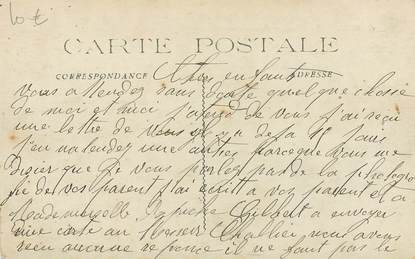 10 €
CARTE POSTALE
CORRESPONDANCE ADRESSE
Chers enfants
vous attendez sans doute quelque chose
de moi et moi j'attend de vous j'ai reçu
une lettre de vous il y a deja 15 jours
j'en attendez une autres parceque vous me
disiez que je vous parlez pas de la photogra
phie de vos parent j'ai ecrit a vos parent et a
Mademoiselle Gilbert a envoyer
une carte au Monsieur nous avons
recu aucune reponse il ne faut pas le